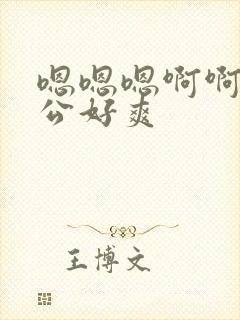 嗯嗯嗯啊啊
公好爽
王博文